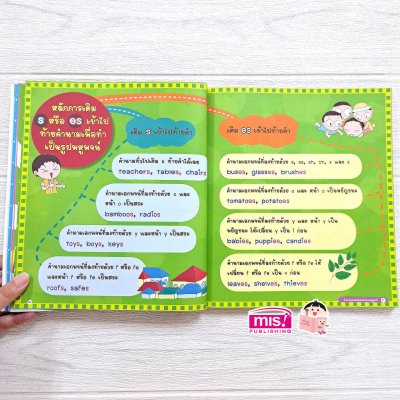 หลักการเติม
s หรือ es เข้าไป
ท้ายคำนามเพื่อทำ
เป็นรูปพหูพจน์
เติม s เข้าไปท้ายคำ
คำนามทั่วไปเติม s ท้ายคำได้เลย
teachers, tables, chairs
คำนามเอกพจน์ที่ลงท้ายด้วย o และ
หน้า o เป็นสระ
bamboos, radios
คำนามเอกพจน์ที่ลงท้ายด้วย y และหน้า y เป็นสระ
toys, boys, keys
คำนามเอกพจน์ที่ลงท้ายด้วย f หรือ fe
และหน้า f หรือ fe เป็นสระ
roofs, safes
เติม es เข้าไปท้ายคำ
คำนามเอกพจน์ที่ลงท้ายด้วย s, ss, sh, ch, x และ z
buses, glasses, brushes
คำนามเอกพจน์ที่ลงท้ายด้วย o และ หน้า o เป็นพยัญชนะ
tomatoes, potatoes
คำนามเอกพจน์ที่ลงท้ายด้วย y และ หน้า y เป็น
พยัญชนะ ให้เปลี่ยน y เป็น i ก่อน
babies, puppies, candies
คำนามเอกพจน์ที่ลงท้ายด้วย f หรือ fe ให้
เปลี่ยน f หรือ fe เป็น v ก่อน
leaves, shelves, thieves
mis!
PUBLISHING